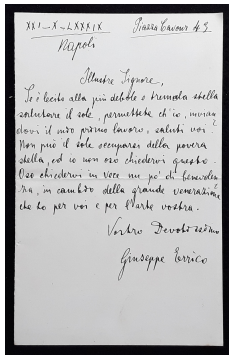 XXI-X-LXXXIX Piazza Cavour 43
Napoli
Illustre Signore,
Se è lecito alla più debole e tremula stella
salutare il sole, permettete ch'io, invian
dovi il mio primo lavoro, saluti voi.
Non può il sole occuparsi della povera
stella, ed io non oso chiedervi questo.
Oso chiedervi in vece un po' di benevolen
za, in cambio della grande venerazione
che ho per voi e per l'arte vostra.
Vostro Devotissimo
Giuseppe Errico